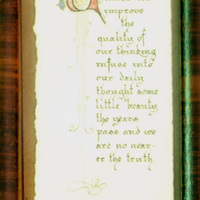 improve
the
quality of
our thinking
infuse into
our daily
thought some
little beauty
the years
pass and we
are no near-
er the truth